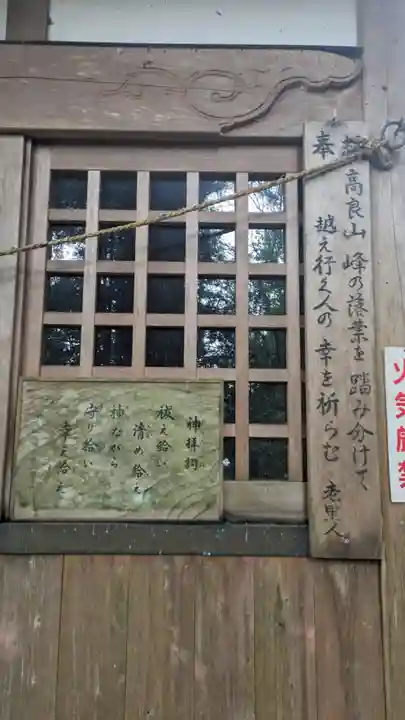 高良山 峰の落葉を 踏み分けて
奉 越え行く人の 幸を祈らむ
神拝詞
祓え給い
清め給え
神ながら
守り給い
幸え給え
火気厳禁